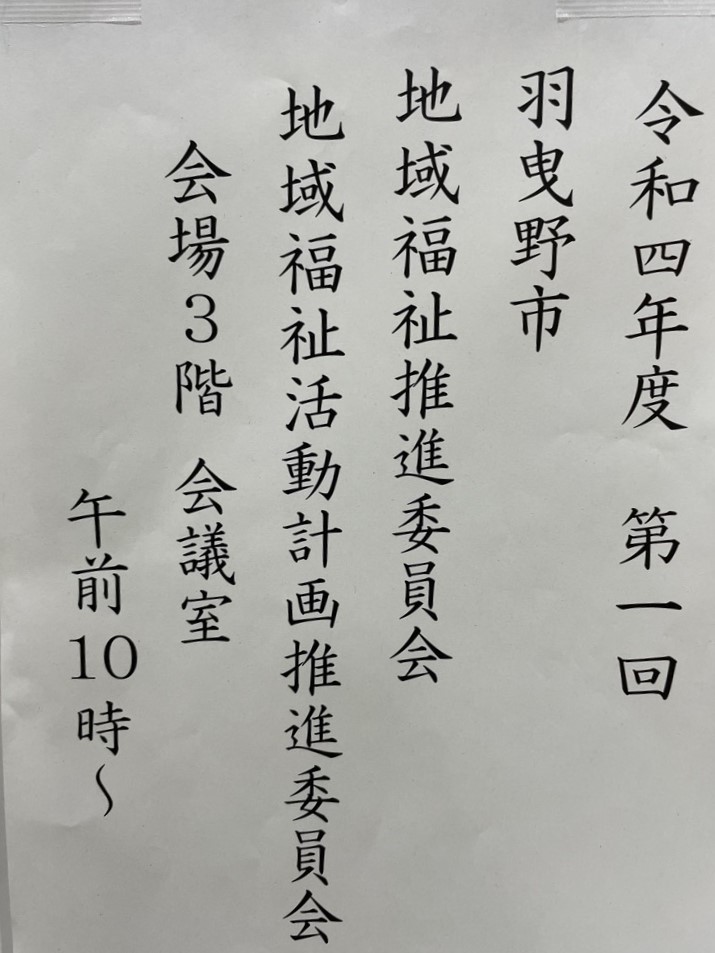 令和四年度　第一回
羽曳野市
地域福祉推進委員会
地域福祉活動計画推進委員会
会場3階　会議室
午前10時～